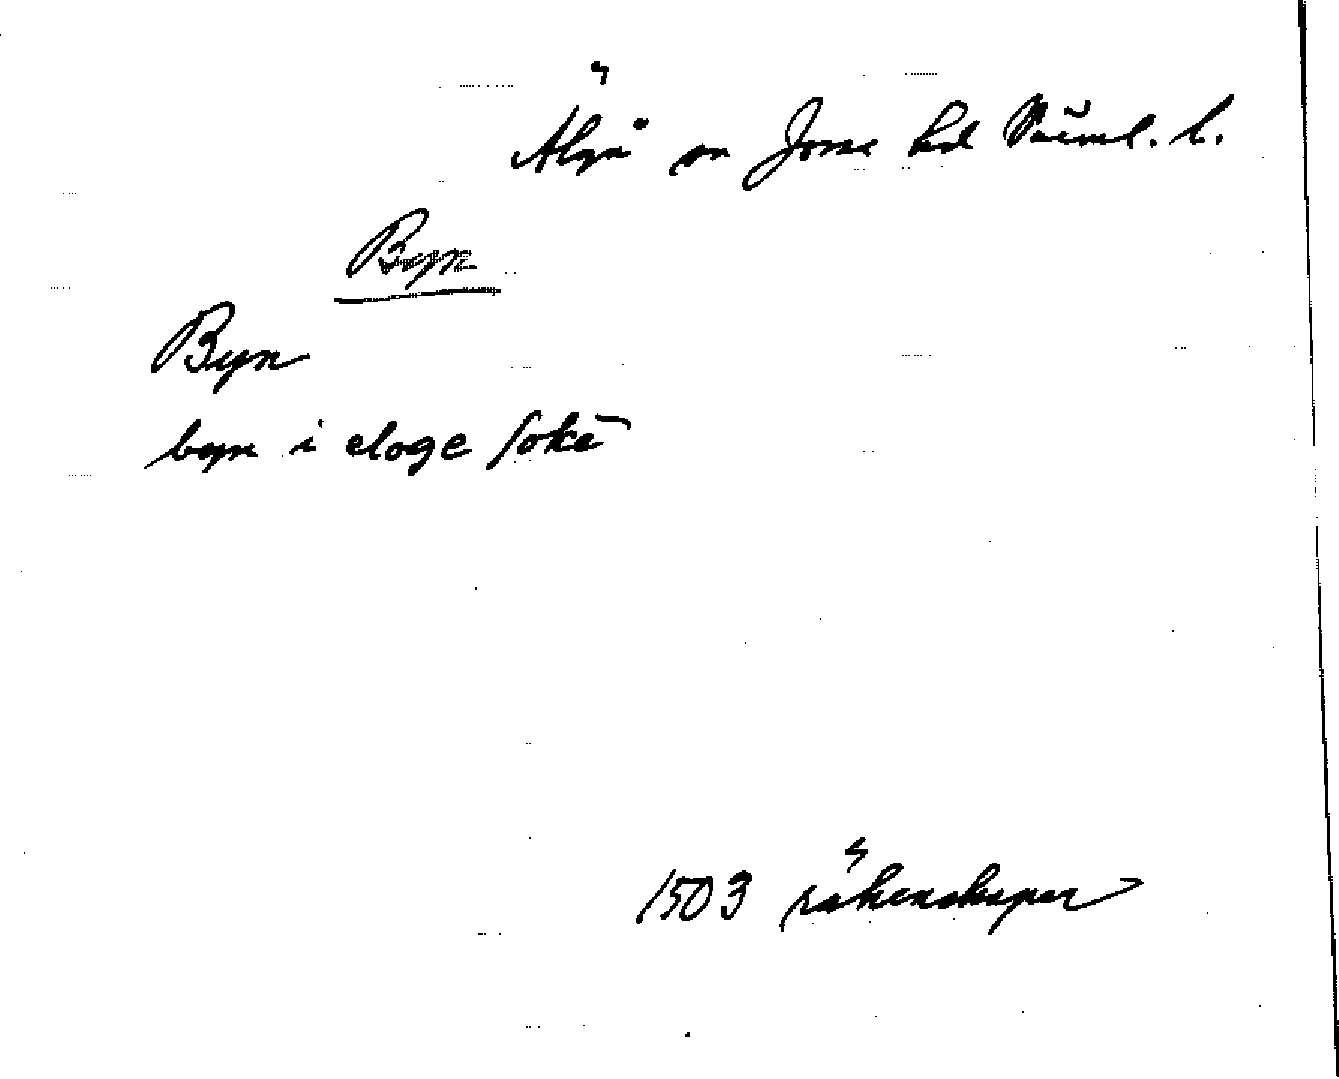 Älgå sn Jösse hd Värml. l.
Byn
Byn
byn i eloge sokē
1503 räkenskaper